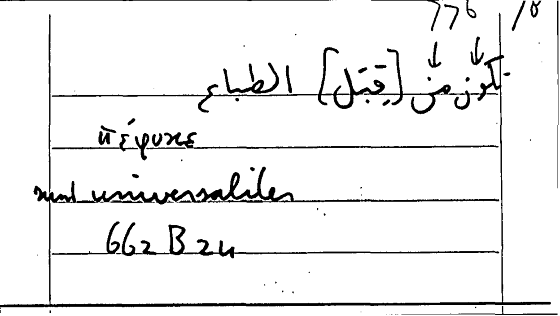 776 / 8
تكون من [قِبَل] الطباع
πέφυκε
sunt universaliter
662 B 24